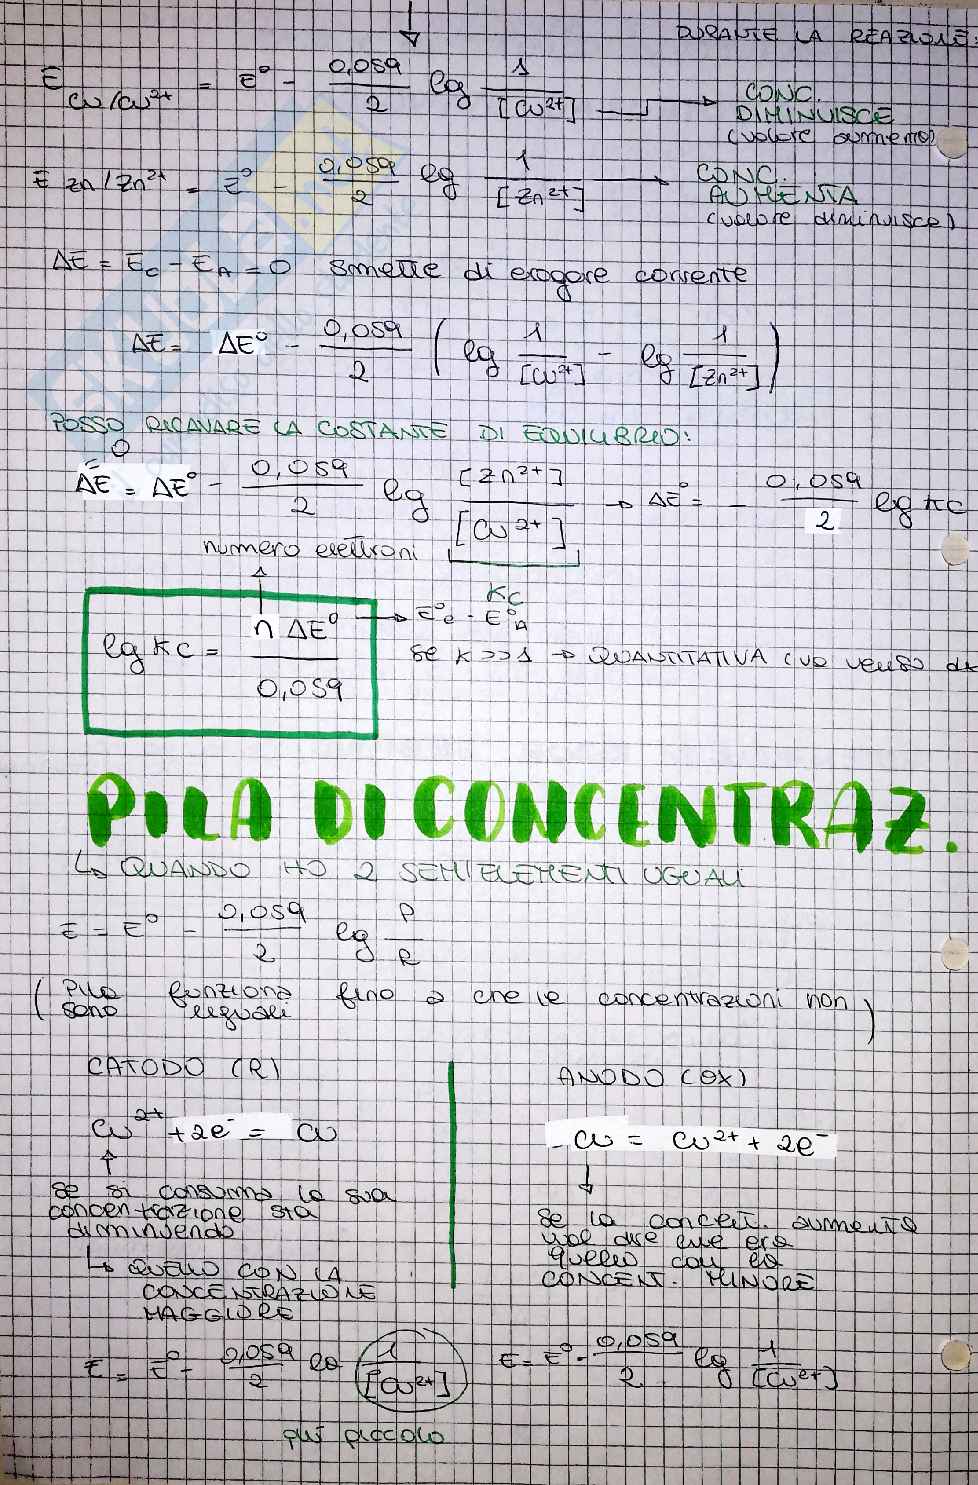 DURANTE LA REAZIONE:
E Cu/Cu²⁺ = E° - 0,059/2 log 1/[Cu²⁺] → CONC. DIMINUISCE (valore aumenta)
E Zn/Zn²⁺ = E° - 0,059/2 log 1/[Zn²⁺] → CONC. AUMENTA (valore diminuisce)
ΔE = E_C - E_A = 0 smette di erogare corrente
ΔE = ΔE° - 0,059/2 (log 1/[Cu²⁺] - log 1/[Zn²⁺])
POSSO RICAVARE LA COSTANTE DI EQUILIBRIO:
0
=
ΔE = ΔE° - 0,059/2 log [Zn²⁺]/[Cu²⁺] → ΔE° = - 0,059/2 log Kc
numero elettroni
Kc
log Kc = n ΔE°/0,059 → E°c - E°A
se K >> 1 → QUANTITATIVA (va verso dx
PILA DI CONCENTRAZ.
↳ QUANDO HO 2 SEMIELEMENTI UGUALI
E = E° - 0,059/2 log P/R
(pila funziona fino a che le concentrazioni non
sono uguali)
CATODO (R)
Cu²⁺ + 2e⁻ = Cu
↑
se si consuma la sua
concentrazione sta
diminuendo
↳ QUELLO CON LA
CONCENTRAZIONE
MAGGIORE
E = E° - 0,059/2 log 1/[Cu²⁺]
più piccolo
ANODO (OX)
- Cu = Cu²⁺ + 2e⁻
↓
se la concent. aumenta
vuol dire che era
quello con la
CONCENT. MINORE
E = E° - 0,059/2 log 1/[Cu²⁺]